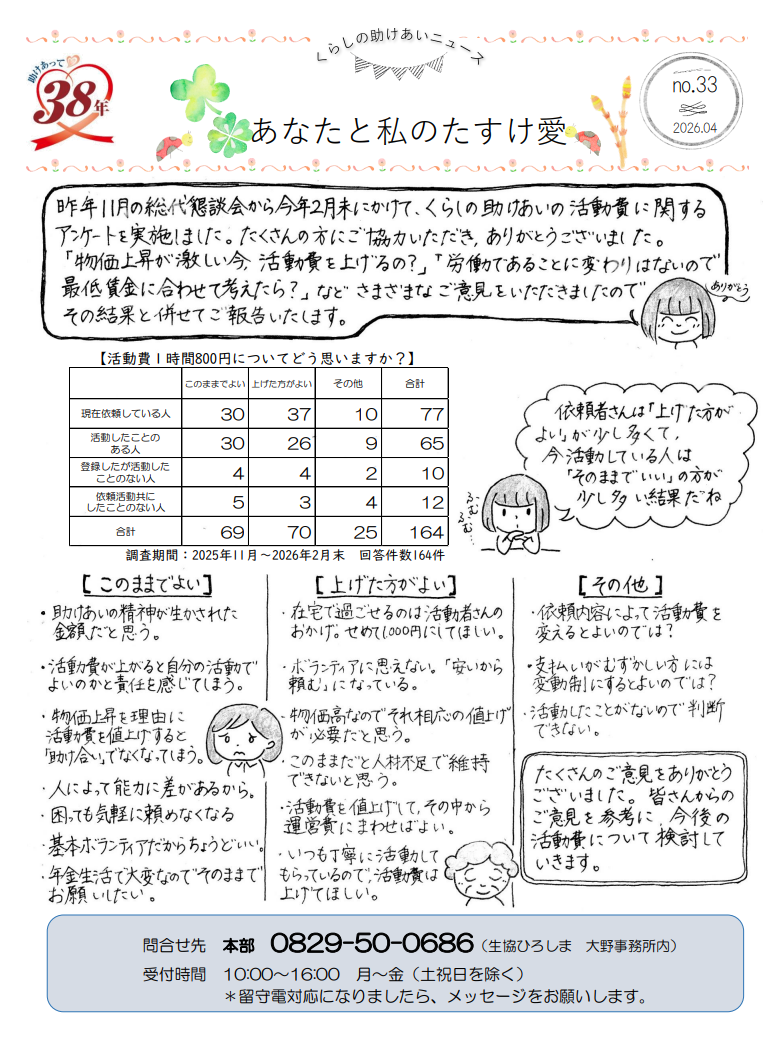 くらしの助けあいニュース
助けあって
38年
no.33
2026.04
あなたと私のたすけ愛
昨年11月の総代懇談会から今年2月末にかけて、くらしの助けあいの活動費に関する
アンケートを実施しました。たくさんの方にご協力いただき、ありがとうございました。
「物価上昇が激しい今、活動費を上げるの？」「労働であることに変わりはないので
最低賃金に合わせて考えたら？」など さまざまなご意見をいただきましたので
その結果と併せてご報告いたします。
ありがとう
【活動費1時間800円についてどう思いますか？】
このままでよい 上げた方がよい その他 合計
現在依頼している人 30 37 10 77
活動したことの
ある人 30 26 9 65
登録したが活動した
ことのない人 4 4 2 10
依頼活動共に
したことのない人 5 3 4 12
合計 69 70 25 164
調査期間：2025年11月～2026年2月末 回答件数164件
依頼者さんは「上げた方が
よい」が少し多くて、
今活動している人は
「そのままでいい」の方が
少し多い結果だね
ふむふむ…
【このままでよい】
・助けあいの精神が生かされた
金額だと思う。
・活動費が上がると自分の活動で
よいのかと責任を感じてしまう。
・物価上昇を理由に
活動費を値上げすると
「助け合い」でなくなってしまう。
・人によって能力に差があるから。
・困っても気軽に頼めなくなる
・基本ボランティアだからちょうどいい。
・年金生活で大変なのでそのままで
お願いしたい。
【上げた方がよい】
・在宅で過ごせるのは活動者さんの
おかげ。せめて1,000円にしてほしい。
・ボランティアに思えない。「安いから
頼む」になっている。
・物価高なのでそれ相応の値上げ
が必要だと思う。
・このままだと人材不足で維持
できないと思う。
・活動費を値上げして、その中から
運営費にまわせばよい。
・いつも丁寧に活動して
もらっているので、活動費は
上げてほしい。
【その他】
・依頼内容によって活動費を
変えるとよいのでは？
・支払いがむずかしい方には
変動制にするとよいのでは？
・活動したことがないので判断
できない。
たくさんのご意見をありがとう
ございました。皆さんからの
ご意見を参考に、今後の
活動費について検討して
いきます。
問合せ先 本部 0829-50-0686（生協ひろしま 大野事務所内）
受付時間 10:00～16:00 月～金（土祝日を除く）
＊留守電対応になりましたら、メッセージをお願いします。